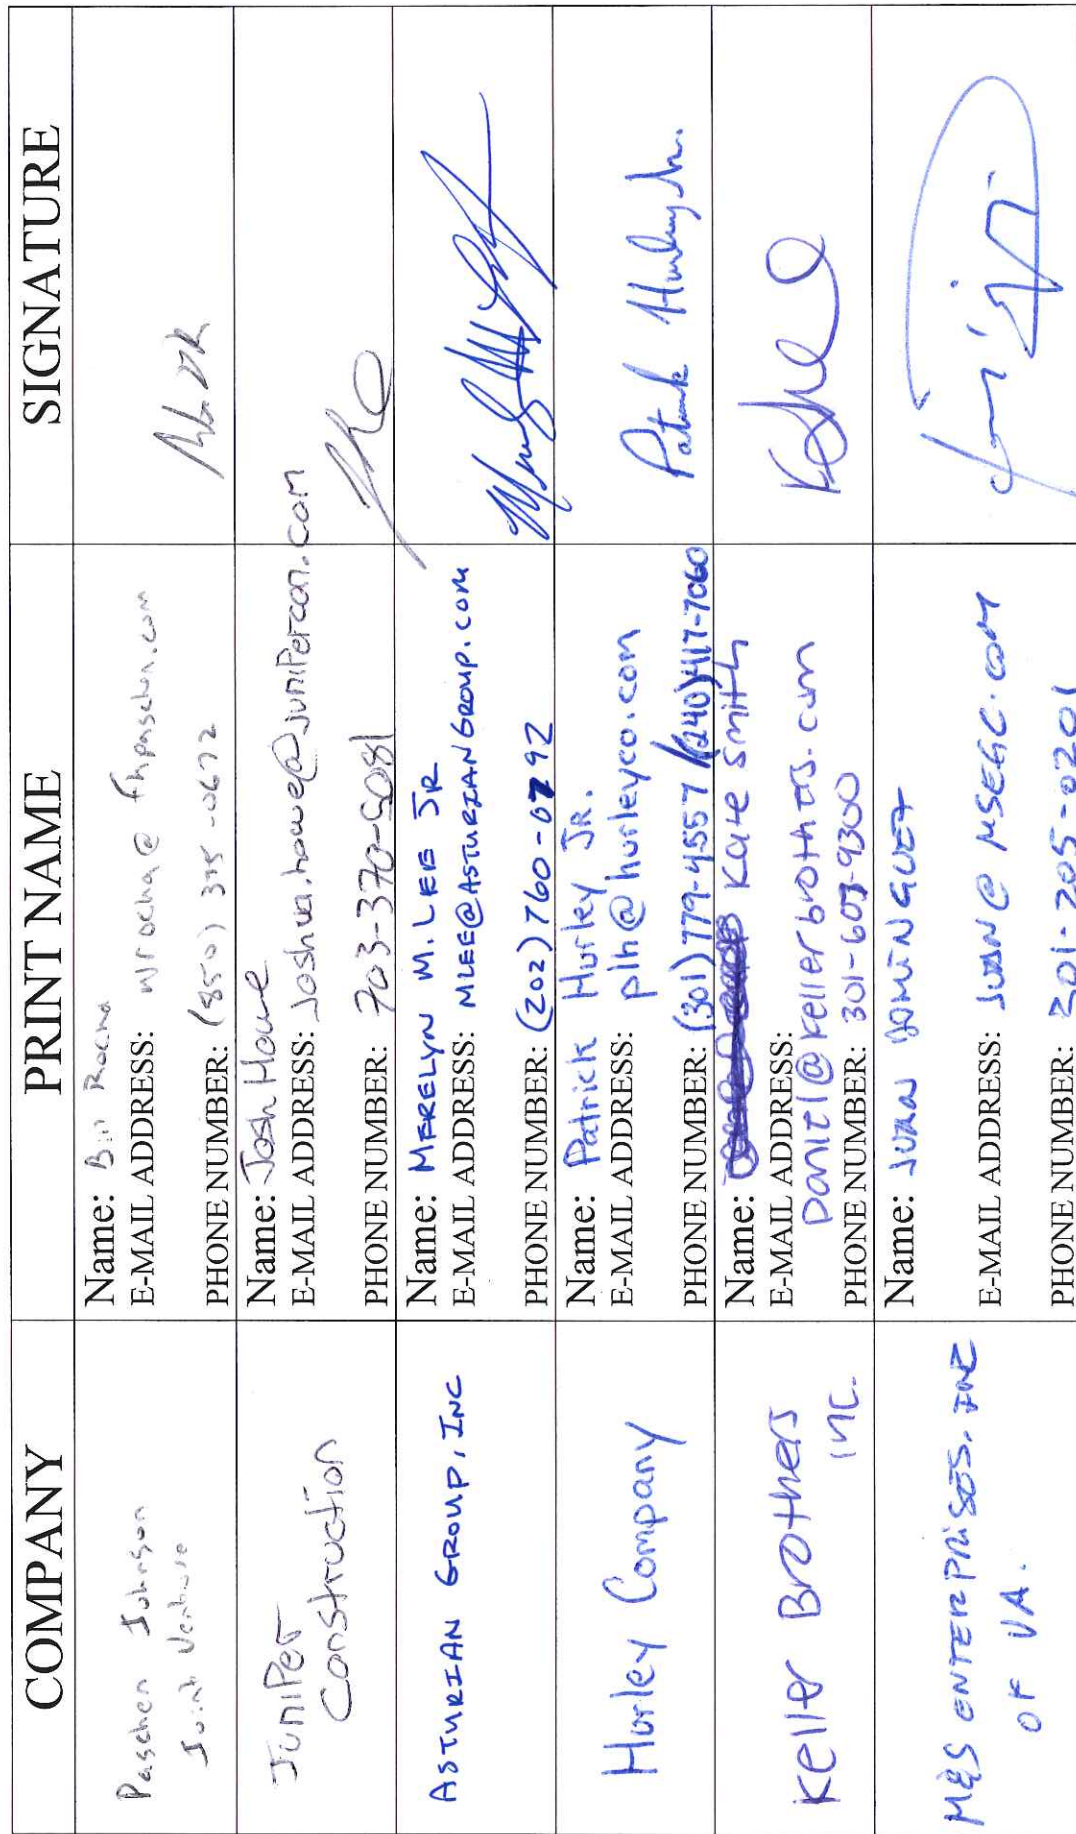 COMPANY
PRINT NAME
SIGNATURE
Paschen Johnson
Joint Venture
Name: Bill Rocha
E-MAIL ADDRESS: wrocha@fhpaschen.com
PHONE NUMBER: (850) 375-0672
Juniper
Construction
Name: Josh Howe
E-MAIL ADDRESS: Joshua.howe@Junipercon.com
PHONE NUMBER: 703-370-5081
ASTURIAN GROUP, INC
Name: MERELYN M. LEE JR
E-MAIL ADDRESS: MLEE@ASTURIANGROUP.COM
PHONE NUMBER: (202) 760-0792
Hurley Company
Name: Patrick Hurley JR.
E-MAIL ADDRESS:
plh@hurleyco.com
PHONE NUMBER: (301) 779-4557 / (240) 417-7060
Patrick Hurley Jr.
Keller Brothers
INC.
Name: Katie Smith
E-MAIL ADDRESS:
Daniel@kellerbrothers.com
PHONE NUMBER: 301-607-9300
M&S ENTERPRISES. INC
OF VA.
Name: JUAN DOMINGUEZ
E-MAIL ADDRESS: JUAN@MSEGC.COM
PHONE NUMBER: 301-205-0201